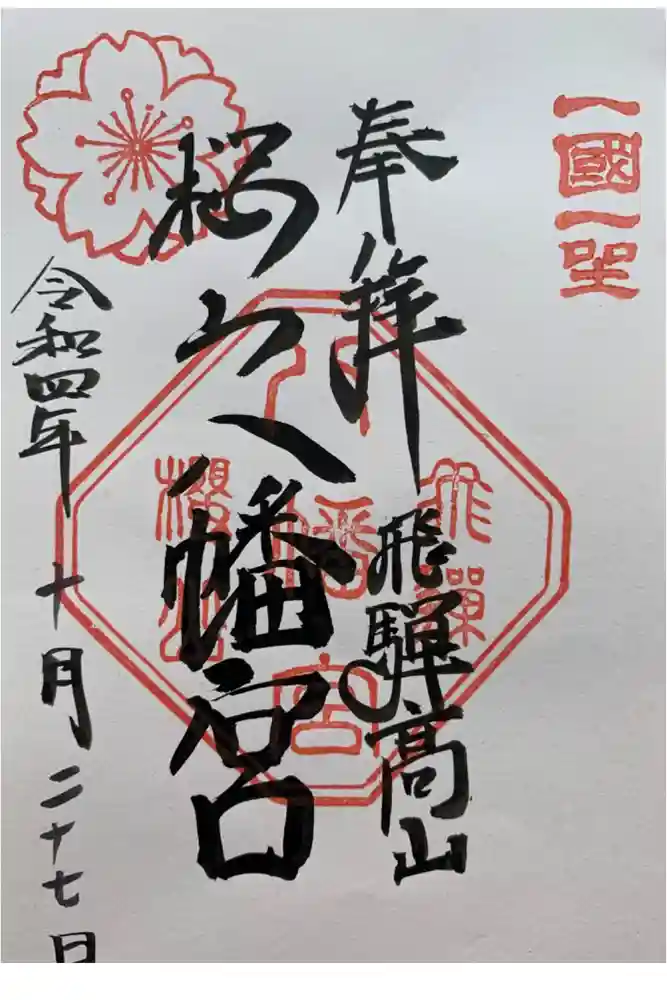 一國一社
奉拝
飛騨高山
桜山八幡宮
飛驒
八幡宮
櫻山
令和四年十月二十七日